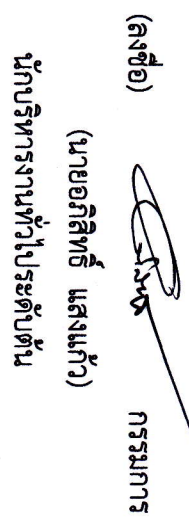 (ลงชื่อ) กรรมการ
(นายอภิสิทธิ์ แสงแก้ว)
นักบริหารงานทั่วไประดับต้น